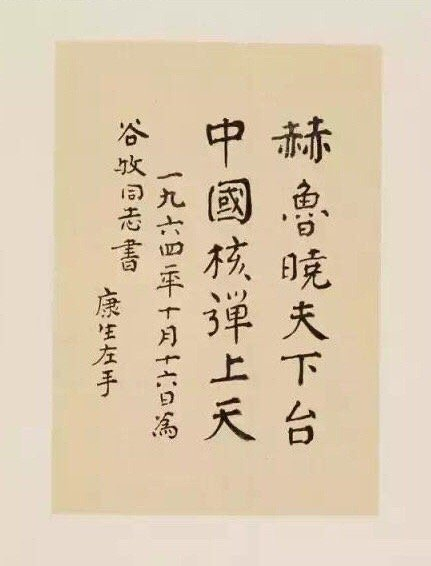 赫魯曉夫下台
中國核弹上天
一九六四年十月十六日為
谷牧同志書
康生左手